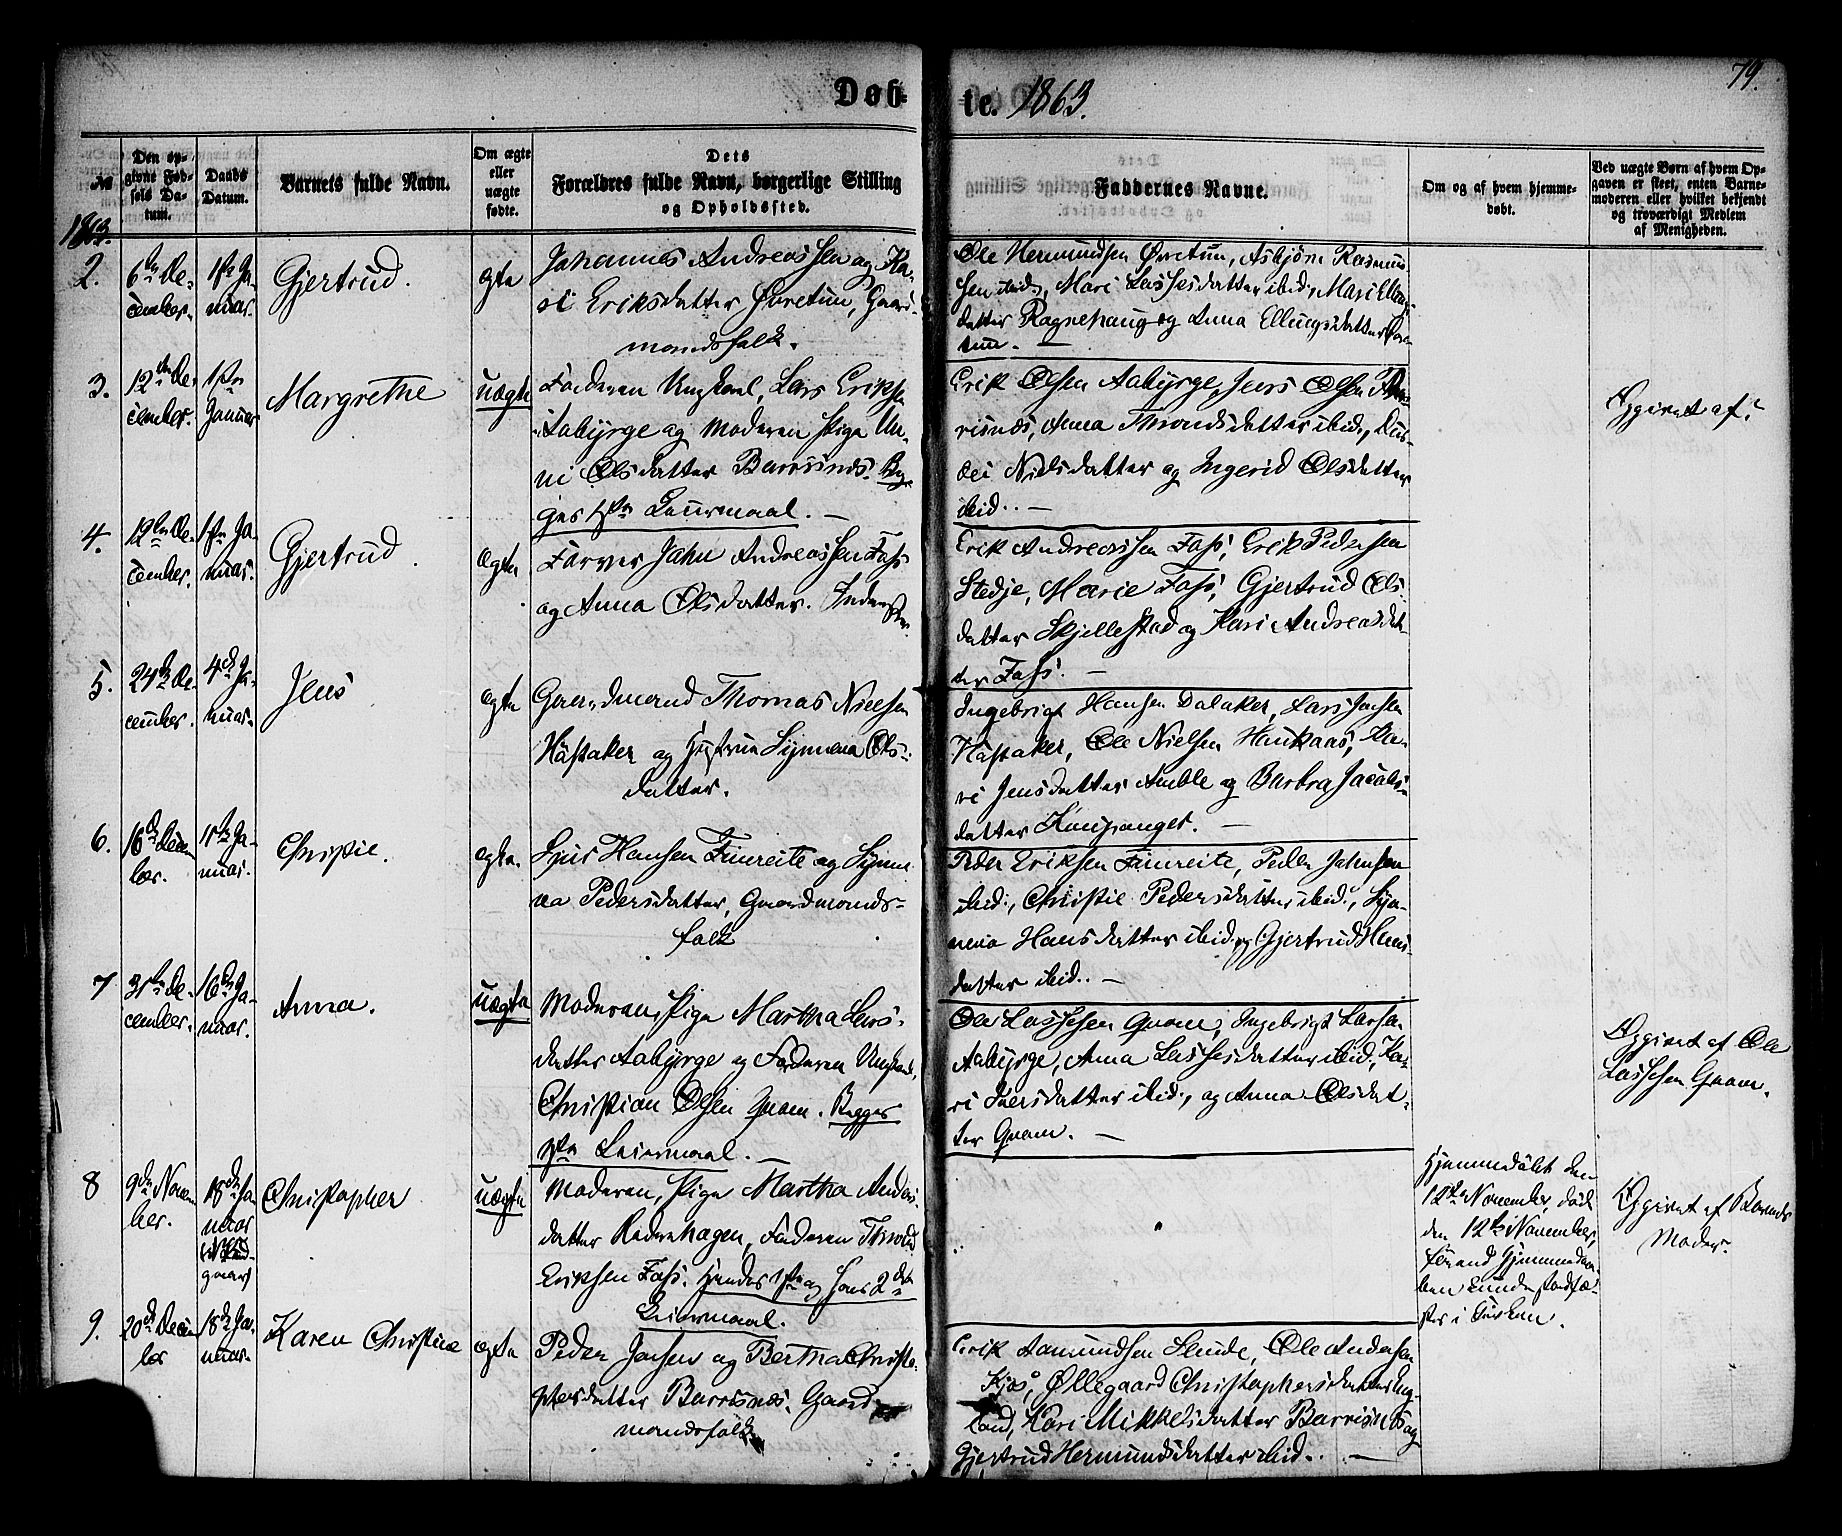 79.
Døb-
te. 1863.
№
Den op-
givne Fød-
sels Da-
tum.
Daabs
Datum.
Barnets fulde Navn.
Om ægte
eller
uægte
fødte.
Dets
Forældres fulde Navn, borgerlige Stilling
og Opholdssted.
Faddernes Navne.
Om og af hvem hjemme-
døbt.
Ved uægte Børn af hvem Op-
gaven er skeet, enten Barne-
moderen eller hvilket bekjendt
og troværdigt Medlem
af Menigheden.
1863.
2.
6te De-
cember.
1ste Ja-
nuar.
Gjertrud.
egte
Johannes Andreassen og Ka-
ri Eriksdatter Øvretun, Gaard-
mandsfolk.
Ole Hermundsen Øvretun, Asbjörn Rasmus-
sen ibid, Mari Lassesdatter ibid, Mari Ellings-
datter Ragnehaug og Anna Ellingsdatter Øvre-
tun. —
3.
12te De-
cember.
1ste
Januar
Margrethe
uægte
Faderen Ungkarl, Lars Eriksen
Aabyrge og Moderen Pige Un-
ni Olsdatter Barrsnes. Beg-
ges 1ste Leiermaal. —
Erik Olsen Aabyrge, Jens Olsen Bar-
risnæs, Anna Throndsdatter ibid.,
Nielsdatter og Ingerid Olsdatter
ibid. —
Opgivet af:
4.
19te De-
cember.
1ste Ja-
nuar.
Gjertrud.
egte
Farver John Andreassen Foss
og Anna Olsdatter. Inderster.
Erik Andreassen Foss, Erik Pedersen
Stedje, Marie Foss, Gjertrud Ols-
datter Skjellestad og Kari Andreasdat-
ter Foss. —
5.
24de De-
cember.
4de Ja-
nuar.
Jens
egte
Gaardmand Thomas Nielsen
Haslaker og Hustrue Synneva Ols-
datter.
Ingebrigt Hansen Dalaker, Lars Jensen
Haslaker, Ole Nielsen Haukaas, Ka-
ri Jensdatter Amble og Barbra Jacobs-
datter Kaupanger. —
6.
16de Decem-
ber.
11te Ja-
nuar.
Christie.
egte.
Sjur Hansen Fimreite og Synne-
va Pedersdatter, Gaardmands-
folk
Peder Eriksen Fimreite, Peder Johnsen
ibid., Christie Pedersdatter ibid., Syn-
neva Hansdatter ibid og Gjertrud Hans-
datter ibid. —
7
31te De-
cember.
16de Ja-
nuar.
Anna.
uægte
Moderen, Pige Martha Lars-
datter Aabyrge og Faderen Ungkarl,
Christian Olsen Qvam. Begges
1ste Leiermaal. —
Ole Lassesen Qvam, Ingebrigt Larsen
Aabyrge, Anna Lassesdatter ibid, Ka-
ri Iversdatter ibid, og Anna Olsdat-
ter Qvam. —
Opgivet af Ole
Lassesen Qvam.
8
9de Novem-
ber.
18de Ja-
nuar
Christopher
uægte
Moderen, Pige Martha Anders-
datter Rodenhagen, Faderen Thrond
Eriksen Foss. Hendes 1ste og Hans 2det
Leiermaal.
Hjemmedöbt den
12te November, död
den 12te November,
förend Hjemmedaa-
ben kunde stadfæ-
stes i Kirken.
Opgivet af Barnets
Moder.
9.
20de Decem-
ber
18de Ja-
nuar.
Karen Christine
egte
Peder Jensen og Bertha Christo-
phersdatter Barrisnæs. Gaard-
mandsfolk
Erik Aamundsen Slinde, Ole Andersen
Kjos, Øllegaard Christophersdatter Eng-
land, Kari Mikkelsdatter Barrisnæs og
Gjertrud Hermundsdatter ibid. —